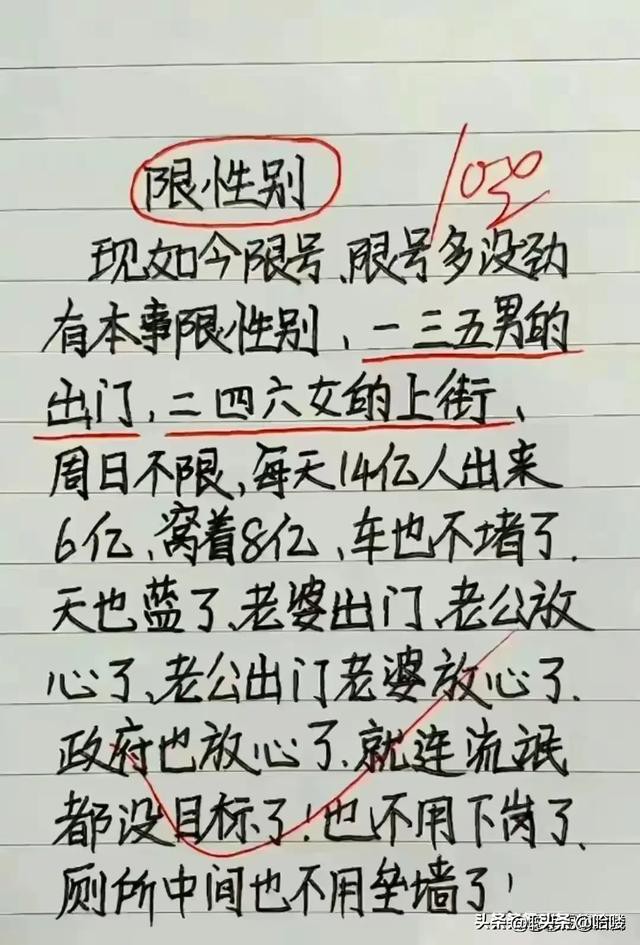 限性别
100
现如今限号、限号多没劲
有本事限性别、一三五男的
出门、二四六女的上街、
周日不限,每天14亿人出来
6亿、窝着8亿、车也不堵了.
天也蓝了、老婆出门、老公放
心了、老公出门老婆放心了.
政府也放心了、就连流氓
都没目标了!也不用下岗了.
厕所中间也不用垒墙了!